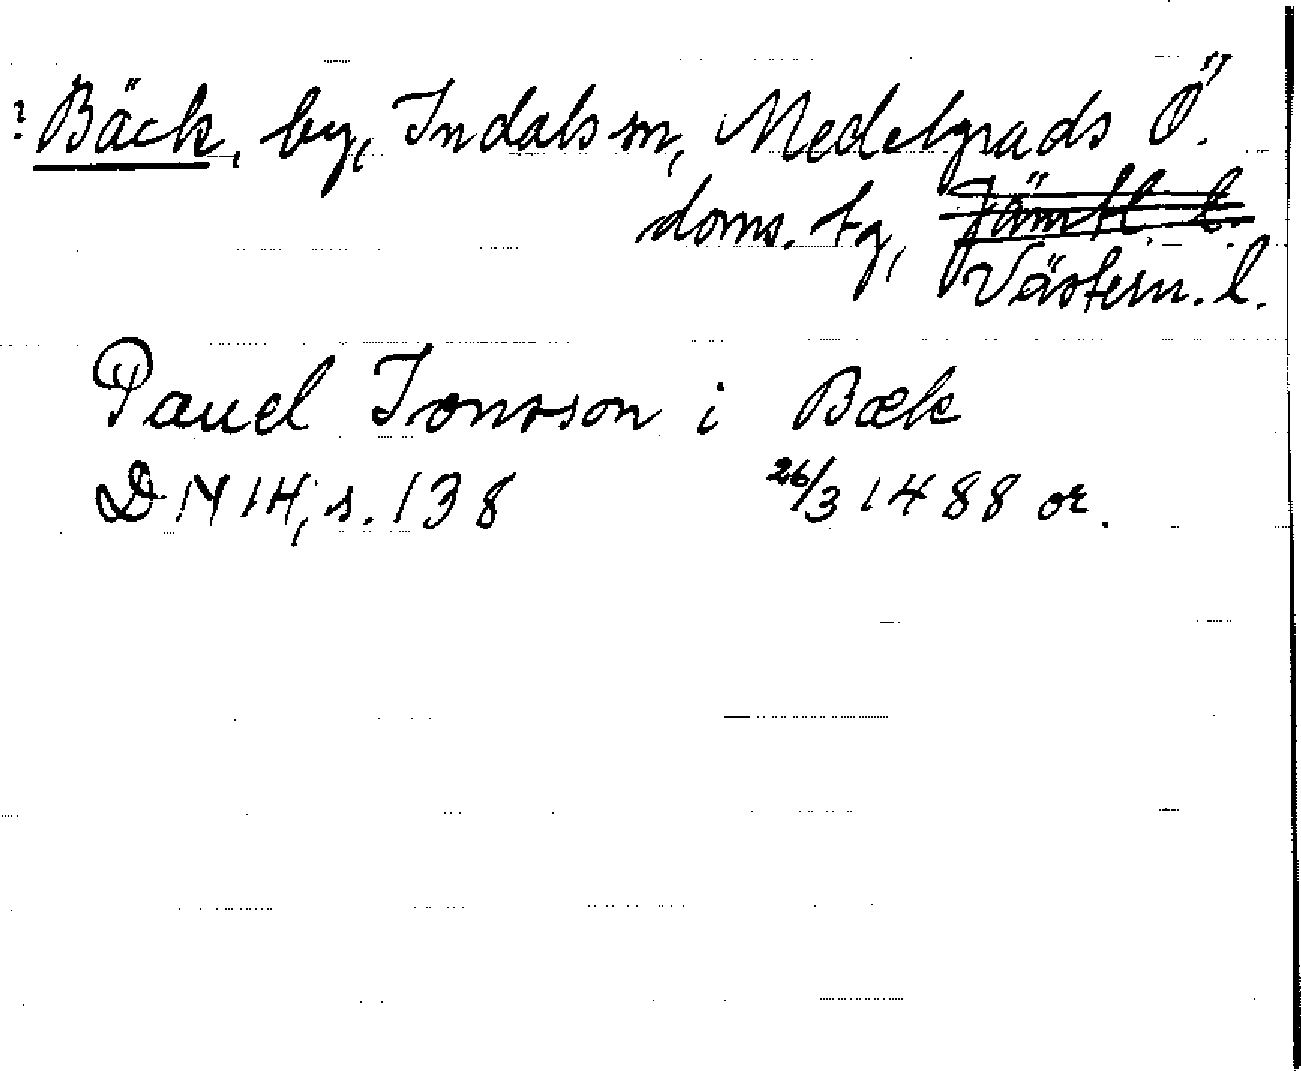 ? Bäck, by, Indals sn, Medelpads Ö.
doms. tg, Jämtl. l.
Västern. l.
Pauel Jonsson i Bæk
DN 14, s. 138 26/3 1488 or.